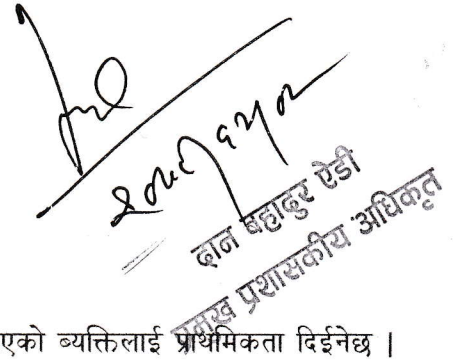 दान बहादुर ऐडी
प्रमुख प्रशासकीय अधिकृत
एको ब्यक्तिलाई प्राथमिकता दिईनेछ |